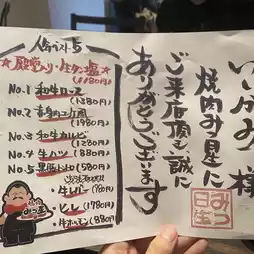 いがみ 様
焼肉みつ星に
ご来店頂き誠に
ありがとうございます
人気ベスト5
★殿堂入り・生タン塩★
(1180円)
No.1 和牛ロース
(1380円)
No.2
(1280円)
No.3 和牛カルビ
(1280円)
No.4 生ハツ (880円)
No.5 黒豚トロ (580円)
・生レバー (780円)
・ヒレ (1780円)
・生ホルモン (880円)
みつ星